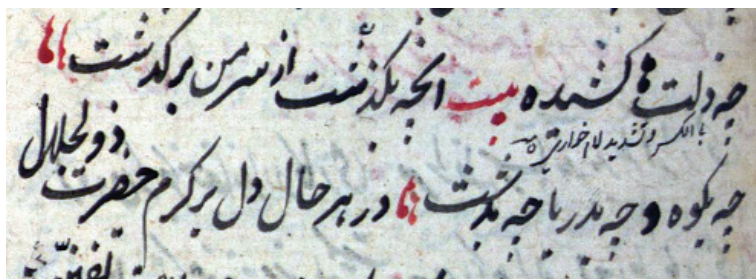 چه ذلت ها کشیده بیت انچه بگذشت از سر من بر گذشت
با الکسر و تشدید لام خواری
چه بکوه و چه بدریا چه بدشت در هر حال دل بر کرم حضرت ذو لجلال